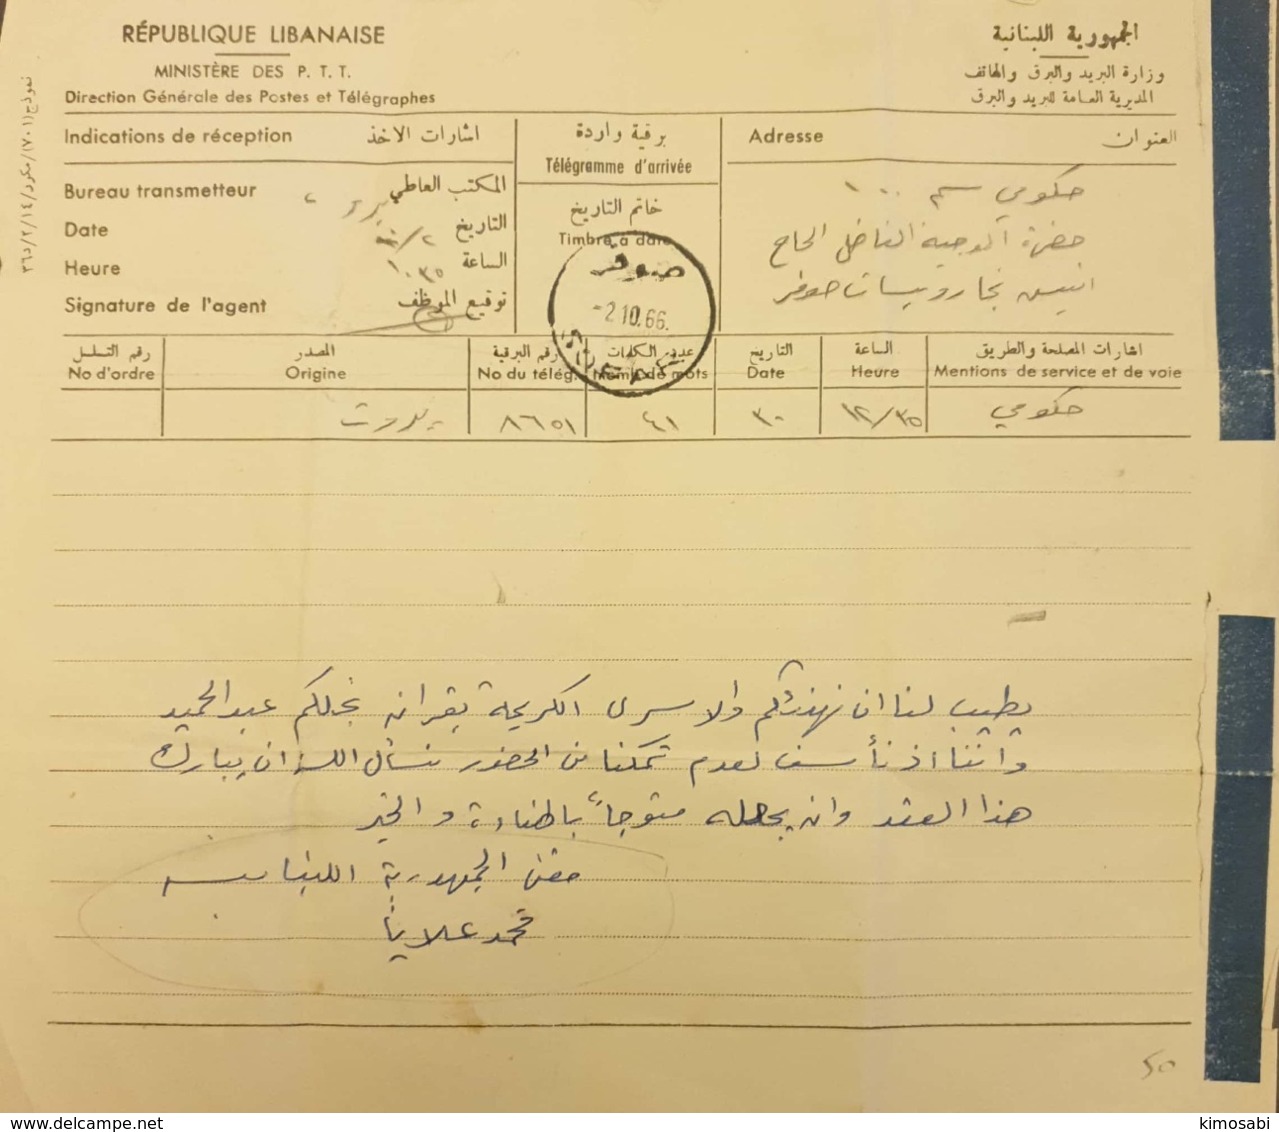 RÉPUBLIQUE LIBANAISE
الجمهورية اللبنانية
MINISTÈRE DES P. T. T.
وزارة البريد والبرق والهاتف
Direction Générale des Postes et Télégraphes
المديرية العامة للبريد والبرق
Indications de réception اشارات الاخذ
برقية واردة
Télégramme d'arrivée
Adresse العنوان
Bureau transmetteur المكتب العاطي
Date التاريخ ٢/١٠
Heure الساعة ١٠،٣٥
Signature de l'agent توقيع الموظف
خاتم التاريخ
Timbre à date
صوفر
-2.10.66.
SOFAR
حكومي
حضرة الوجيه الفاضل الحاج
انيس نجا صوفر
رقم التسلسل المصدر رقم البرقية عدد الكلمات التاريخ الساعة اشارات المصلحة والطريق
No d'ordre Origine No du télég. Nomb de mots Date Heure Mentions de service et de voie
بيروت ٨٦٥١ ٤١ ٣٠ ١٢/٣٥ حكومي
يطيب لنا ان نهنئكم والاسرة الكريمة بقران نجلكم عبد الحميد
واننا اذ نأسف لعدم تمكننا من الحضور نسأل الله ان يبارك
هذا العقد وان يجعله متوجاً بالهناءة والخير
مفتي الجمهورية اللبنانية
محمد علايا
٥٠
kimosabi